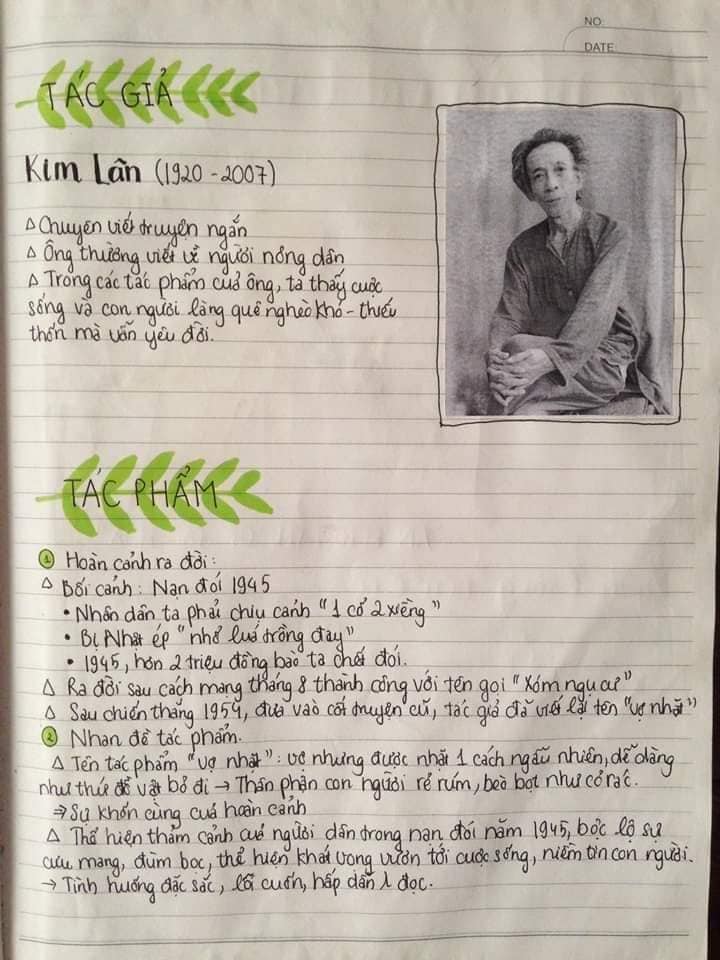 NO:
DATE:
TÁC GIẢ
Kim Lân (1920 - 2007)
Δ Chuyên viết truyện ngắn
Δ Ông thường viết về người nông dân
Δ Trong các tác phẩm của ông, ta thấy cuộc
sống và con người làng quê nghèo khó - thiếu
thốn mà vẫn yêu đời.
TÁC PHẨM
1 Hoàn cảnh ra đời:
Δ Bối cảnh: Nạn đói 1945
• Nhân dân ta phải chịu cảnh "1 cổ 2 xiềng"
• Bị Nhật ép "nhổ lúa trồng đay"
• 1945, hơn 2 triệu đồng bào ta chết đói.
Δ Ra đời sau cách mạng tháng 8 thành công với tên gọi "Xóm ngụ cư"
Δ Sau chiến thắng 1954, dựa vào cốt truyện cũ, tác giả đã viết lại tên "vợ nhặt"
2 Nhan đề tác phẩm.
Δ Tên tác phẩm "vợ nhặt": vợ nhưng được nhặt 1 cách ngẫu nhiên, dễ dàng
như thứ đồ vật bỏ đi → Thân phận con người rẻ rúm, bèo bọt như cỏ rác.
⇒ Sự khốn cùng của hoàn cảnh
Δ Thể hiện thảm cảnh của người dân trong nạn đói năm 1945, bộc lộ sự
cưu mang, đùm bọc, thể hiện khát vọng vươn tới cuộc sống, niềm tin con người.
→ Tình huống đặc sắc, lôi cuốn, hấp dẫn đọc.